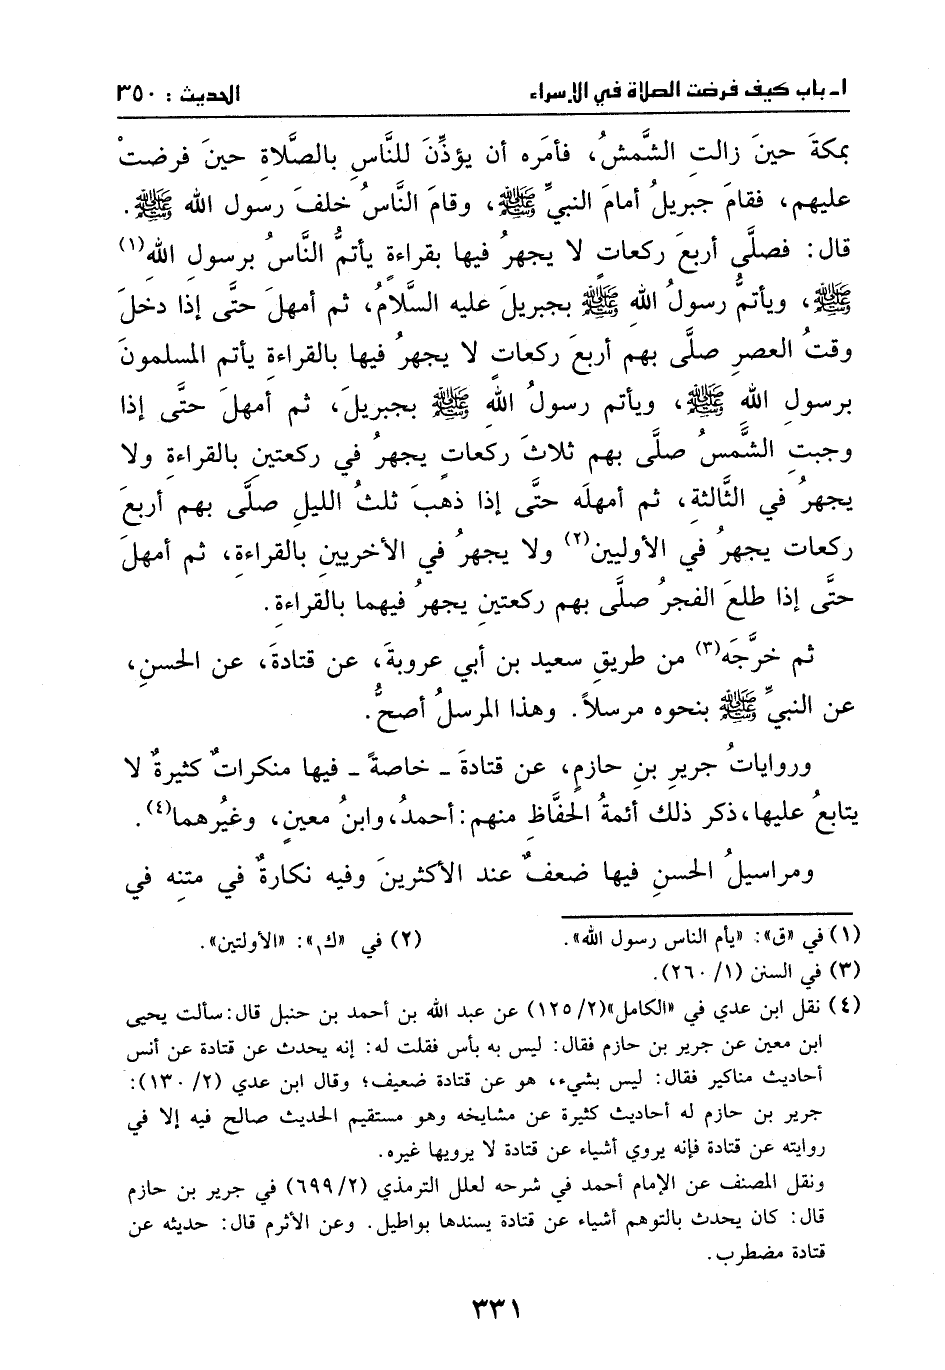 ١ـ باب كيف فرضت الصلاة في الإسراء الحديث : ٣٥٠
بمكةَ حينَ زالتِ الشَّمسُ، فأمَره أن يؤذِّنَ للنَّاسِ بالصَّلاةِ حينَ فرضتْ
عليهم، فقامَ جبريلُ أمامَ النبيِّ ﷺ، وقامَ النَّاسُ خلفَ رسول الله ﷺ.
قال: فصلَّى أربعَ ركعاتٍ لا يجهرُ فيها بقراءةٍ يأتمُّ النَّاسُ برسولِ اللهِ(١)
ﷺ، ويأتمُّ رسولُ اللهِ ﷺ بجبريلَ عليه السَّلامُ، ثم أمهلَ حتَّى إذا دخلَ
وقتُ العصرِ صلَّى بهم أربعَ ركعاتٍ لا يجهرُ فيها بالقراءةِ يأتم المسلمونَ
برسولِ اللهِ ﷺ، ويأتم رسولُ اللهِ ﷺ بجبريلَ، ثم أمهلَ حتَّى إذا
وجبتِ الشَّمسُ صلَّى بهم ثلاثَ ركعاتٍ يجهرُ في ركعتينِ بالقراءةِ ولا
يجهرُ في الثَّالثةِ، ثم أمهلَه حتَّى إذا ذهبَ ثلثُ الليلِ صلَّى بهم أربعَ
ركعات يجهرُ في الأوليين(٢) ولا يجهرُ في الأخريينِ بالقراءةِ، ثم أمهلَ
حتَّى إذا طلعَ الفجرُ صلَّى بهم ركعتينِ يجهرُ فيهما بالقراءةِ.
ثم خرَّجَه(٣) من طريقِ سعيد بن أبي عروبةَ، عن قتادةَ، عن الحسنِ،
عن النبيِّ ﷺ بنحوه مرسلاً. وهذا المرسلُ أصحُّ.
ورواياتُ جريرِ بنِ حازمٍ، عن قتادةَ ـ خاصةً ـ فيها منكراتٌ كثيرةٌ لا
يتابعُ عليها، ذكر ذلك أئمةُ الحفَّاظِ منهم: أحمدُ، وابنُ معينٍ، وغيُرهما(٤).
ومراسيلُ الحسنِ فيها ضعفٌ عند الأكثرينَ وفيه نكارةٌ في متنِه في
(١) في «ق»: «يأم الناس رسول الله». (٢) في «ك١»: «الأولتين».
(٣) في السنن (١/ ٢٦٠).
(٤) نقل ابن عدي في «الكامل»(٢/ ١٢٥) عن عبد الله بن أحمد بن حنبل قال: سألت يحيى
ابن معين عن جرير بن حازم فقال: ليس به بأس فقلت له: إنه يحدث عن قتادة عن أنس
أحاديث مناكير فقال: ليس بشيء، هو عن قتادة ضعيف؛ وقال ابن عدي (٢/ ١٣٠):
جرير بن حازم له أحاديث كثيرة عن مشايخه وهو مستقيم الحديث صالح فيه إلا في
روايته عن قتادة فإنه يروي أشياء عن قتادة لا يرويها غيره.
ونقل المصنف عن الإمام أحمد في شرحه لعلل الترمذي (٢/ ٦٩٩) في جرير بن حازم
قال: كان يحدث بالتوهم أشياء عن قتادة يسندها بواطيل. وعن الأثرم قال: حديثه عن
قتادة مضطرب.
٣٣١